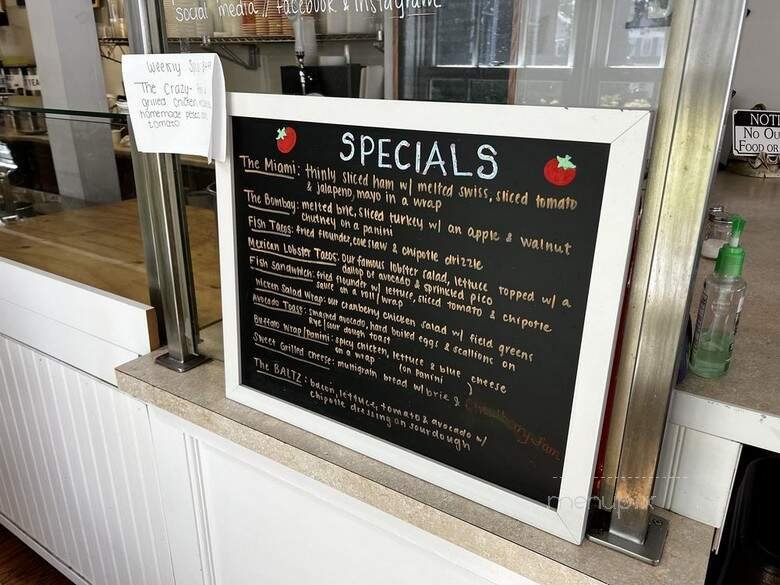 social media // facebook & instagram
Weekly
The Crazy-
grilled chicken
homemade pesto
tomato
SPECIALS
The Miami: thinly sliced ham w/ melted swiss, sliced tomato
& jalapeno, mayo in a wrap
The Bombay: melted brie, sliced turkey w/ an apple & walnut
chutney on a panini
Fish Tacos: fried flounder, coleslaw & chipotle drizzle
Mexican Lobster Tacos: our famous lobster salad, lettuce topped w/ a
dallop of avocado & sprinkled pico
Fish Sandwhich: fried flounder w/ lettuce, sliced tomato & chipotle
sauce on a roll/wrap
Salad Wrap: our cranberry chicken salad w/ field greens
Avocado Toast: smashed avocado, hard boiled eggs & scallions on
Rye/sour dough toast
Buffalo Wrap/Panini: spicy chicken, lettuce & blue cheese
on a wrap (on panini)
Sweet Grilled Cheese: multigrain bread w/ brie & Strawberry Jam
The BALTZ: bacon, lettuce, tomato & avocado w/
chipotle dressing on sourdough
NOTI
No Ou
Food or
menupix